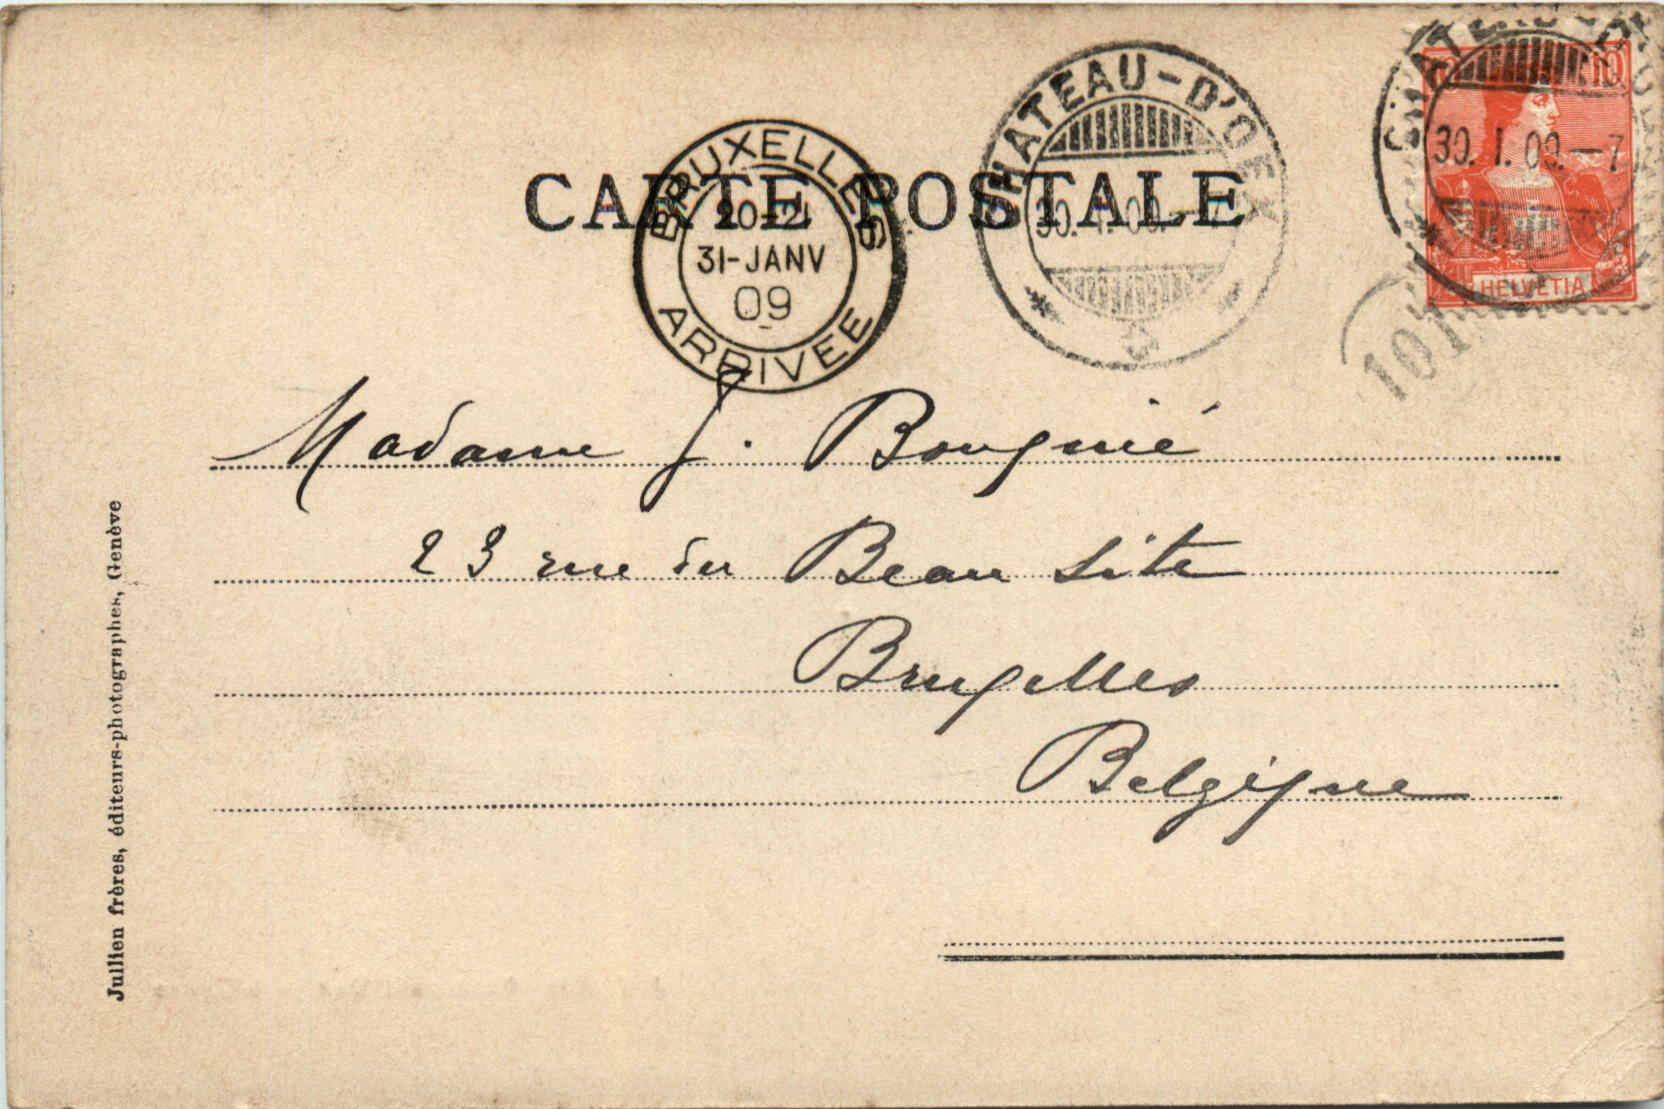 CARTE POSTALE
BRUXELLES
20-21
31-JANV
09
ARRIVEE
CHATEAU-D'OEX
30. I. 09.-7
CHATEAU-D'OEX
30. I. 09.-7
10
HELVETIA
101
Madame J. Bougnié
23 rue du Beau Site
Bruxelles
Belgique
Jullien frères, éditeurs-photographes, Genève